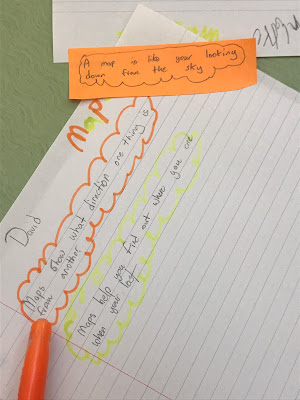 A map is like your looking
down from the sky
Maps
David
Maps show what direction one thing is
from another
Maps help you find out where you are
when your lost